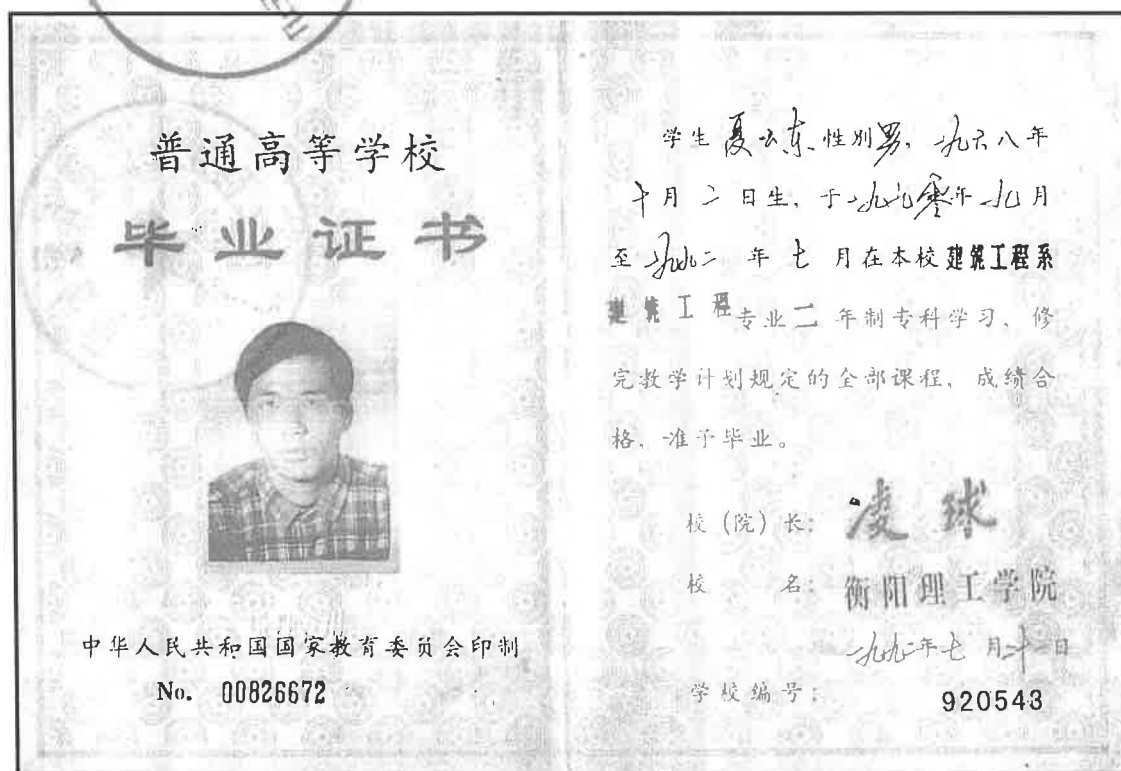 普通高等学校
毕业证书
中华人民共和国国家教育委员会印制
No. 00826672
学生夏云东性别男，一九六八年
十月二日生，于一九九零年九月
至一九九二年七月在本校建筑工程系
建筑工程专业二年制专科学习，修
完教学计划规定的全部课程，成绩合
格，准予毕业。
校（院）长：凌球
校名：衡阳理工学院
一九九二年七月二十一日
学校编号：920543